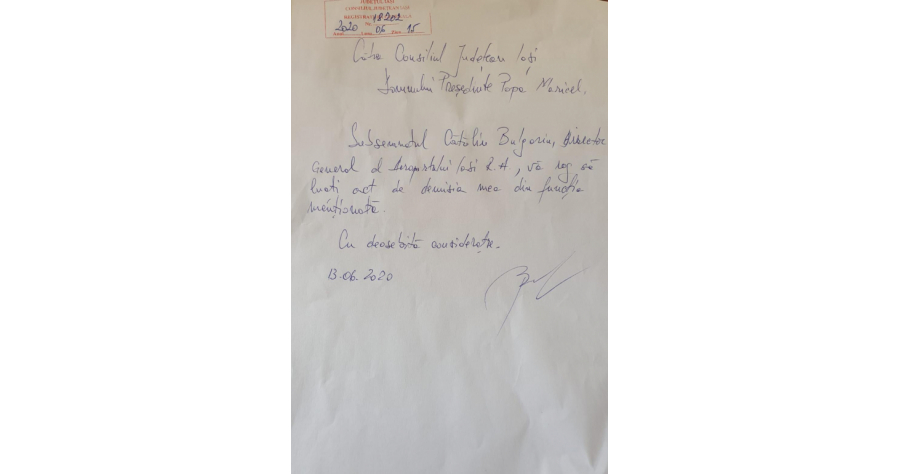 JUDEȚUL IAȘI
CONSILIUL JUDEȚEAN IAȘI
REGISTRATURA
Nr. 18202
2020 Luna 06 Ziua 15
Către Consiliul Județean Iași
Domnului Președinte Popa Maricel,
Subsemnatul Cătălin Bulgariu, Director
General al Aeroportului Iași R.A, vă rog să
luați act de demisia mea din funcția
menționată.
Cu deosebită considerație.
13.06.2020